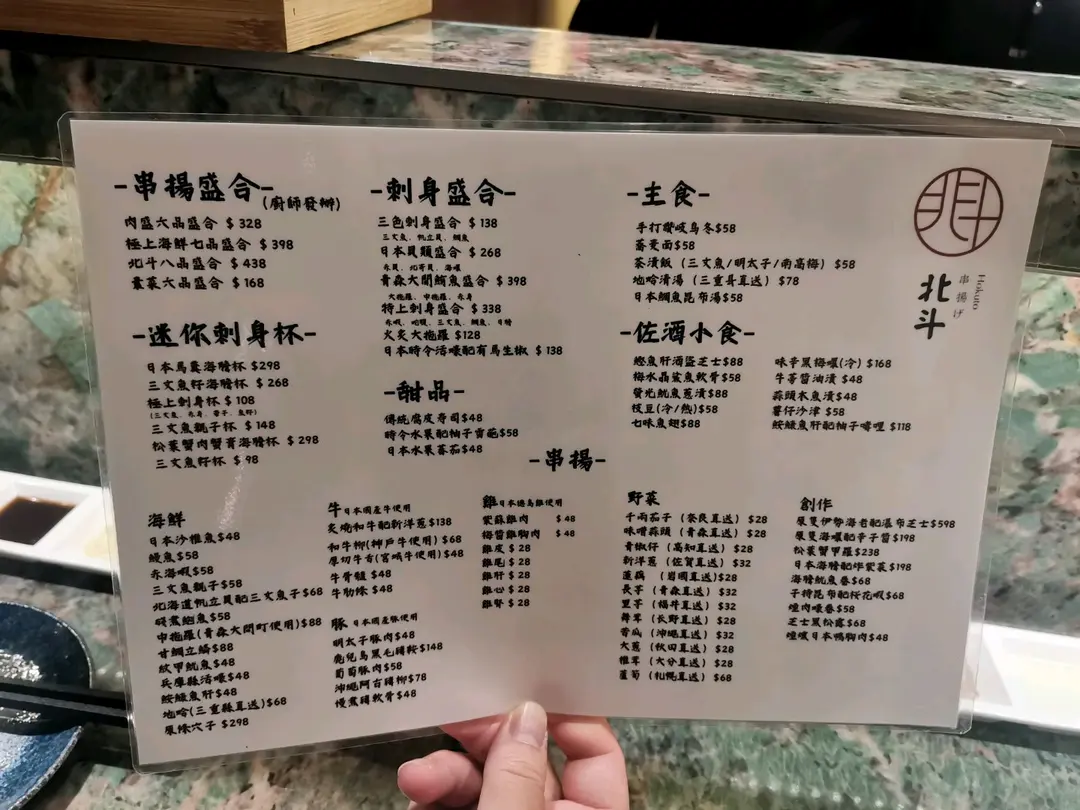 -串揚盛合-(廚師發辦)
肉盛六品盛合 $ 328
極上海鮮七品盛合 $ 398
北斗八品盛合 $ 438
素菜六品盛合 $ 168
-迷你刺身杯-
日本馬糞海膽杯 $298
三文魚籽海膽杯 $ 268
極上刺身杯 $ 108
(三文魚、赤身、帶子、魚籽)
三文魚親子杯 $ 148
松葉蟹肉蟹膏海膽杯 $ 298
三文魚籽杯 $ 98
-刺身盛合-
三色刺身盛合 $ 138
三文魚、帆立貝、鯛魚
日本貝類盛合 $ 268
赤貝、北寄貝、海螺
青森大間鮪魚盛合 $ 398
大拖羅、中拖羅、赤身
特上刺身盛合 $ 338
火炙大拖羅 $128
日本時令活嚎配有馬生椒 $ 138
-甜品-
傳統腐皮寿司$48
時令水果配柚子雪葩$58
日本水果蕃茄$48
-主食-
手打讚岐烏冬$58
蕎麦面$58
茶漬飯 (三文魚/明太子/南高梅) $58
地哈清湯 (三重县直送) $78
日本鯛魚昆布湯$58
-佐酒小食-
鰹魚肝酒盜芝士$88
梅水晶鯊魚軟骨$58
螢光魷魚蔥漬$88
枝豆(冷/熱)$58
七味魚翅$88
味辛黑梅螺(冷) $168
牛蒡醬油漬 $48
蒜頭木魚漬$48
薯仔沙津 $58
鮟鱇魚肝配柚子啫喱 $118
北斗
串揚げ
Hokuto
-串揚-
海鮮
日本沙追魚$48
鰻魚$58
赤海蝦$58
三文魚親子$58
北海道帆立貝配三文魚子$68
碳煮鮑魚$58
中拖羅(青森大間町使用)$88
甘鯛立鱗$88
紋甲魷魚$48
兵庫縣活嚎$48
鮟鱇魚肝$48
地哈(三重縣直送)$68
原條穴子 $298
牛日本國產牛使用
炙燒和牛配新洋蔥$138
和牛柳(神戶牛使用) $68
厚切牛舌(宮城牛使用)$48
牛骨髓 $48
牛肋條 $48
豚 日本國產豚使用
明太子豚肉$48
鹿兒島黑毛豬鞍$148
葡萄豚肉$58
沖繩阿古豬柳$78
慢煮豬軟骨$48
雞日本德島雞使用
紫蘇雞肉 $ 48
梅醬雞胸肉 $ 48
雞皮 $ 28
雞尾 $ 28
雞肝 $ 28
雞心 $ 28
雞腎 $ 28
野菜
千両茄子 (奈良直送) $28
味噌蒜頭 (青森直送) $28
青椒仔 (高知直送) $28
新洋蔥 (佐賀直送) $32
蓮藕 (岩國直送)$28
長芋 (青森直送) $32
里芋 (福井直送) $32
舞茸 (長野直送) $28
苦瓜 (沖繩直送) $32
大蔥 (秋田直送) $28
椎茸 (大分直送) $28
蘆筍 (札幌直送) $68
創作
原隻伊勢海老配瀑布芝士$598
原隻海螺配辛子醬$198
松葉蟹甲羅$238
日本海膽配炸紫菜$198
海膽魷魚卷$68
子持昆布配桜花蝦$68
煙肉嚎卷$58
芝士黑松露$68
煙燻日本鴨胸肉$48